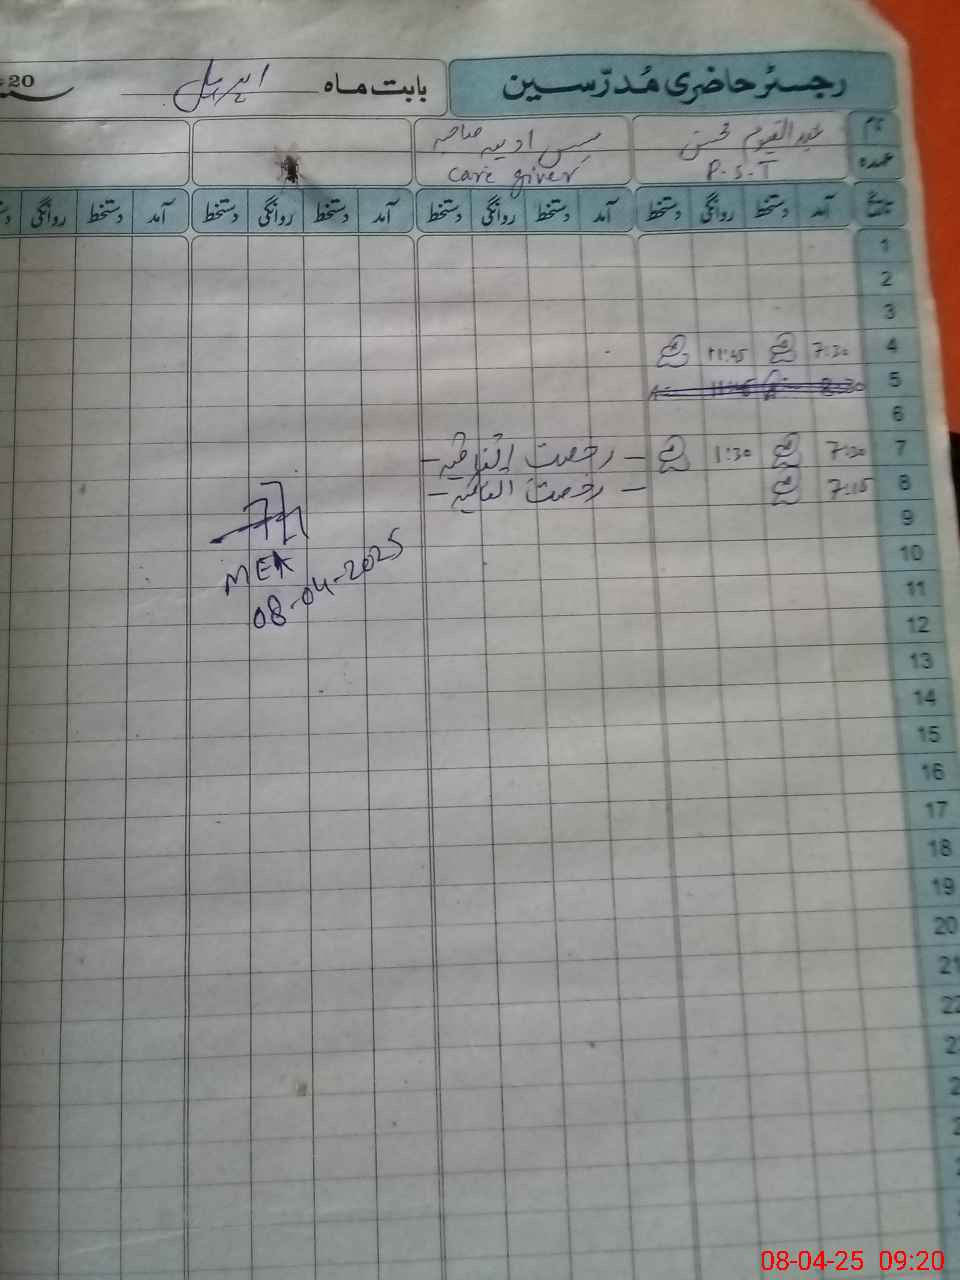 رجسٹر حاضری مُدرّسین
بابت ماہ اپریل 20
نام عبدالقیوم محسن مس ادیبہ صاحبہ
عہدہ P.S.T care giver
تاریخ آمد دستخط روانگی دستخط آمد دستخط روانگی دستخط آمد دستخط روانگی دستخط آمد دستخط روانگی
1
2
3
4 7:30 11:45
5 8:30 11:45
6
7 7:30 1:30 - رخصت اتفاقیہ -
8 7:15 - رخصت اتفاقیہ -
9
10
11
12
13
14
15
16
17
18
19
20
21
22
MEA
08-04-2025
08-04-25 09:20